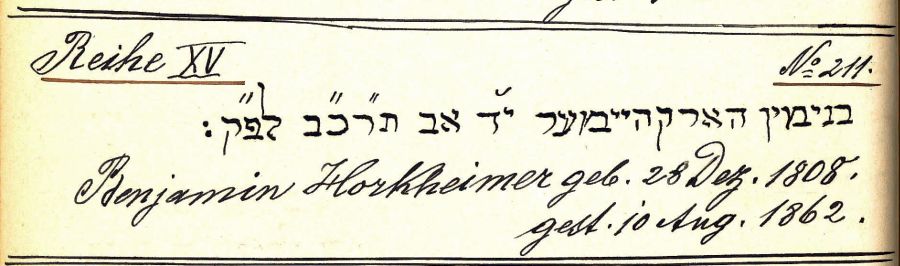 Reihe XV
No 211.
בנימין הארקהיימער י״ד אב ת״רכ״ב לפ״ק :
Benjamin Horkheimer geb. 28 Dez. 1808.
gest. 10 Aug. 1862.